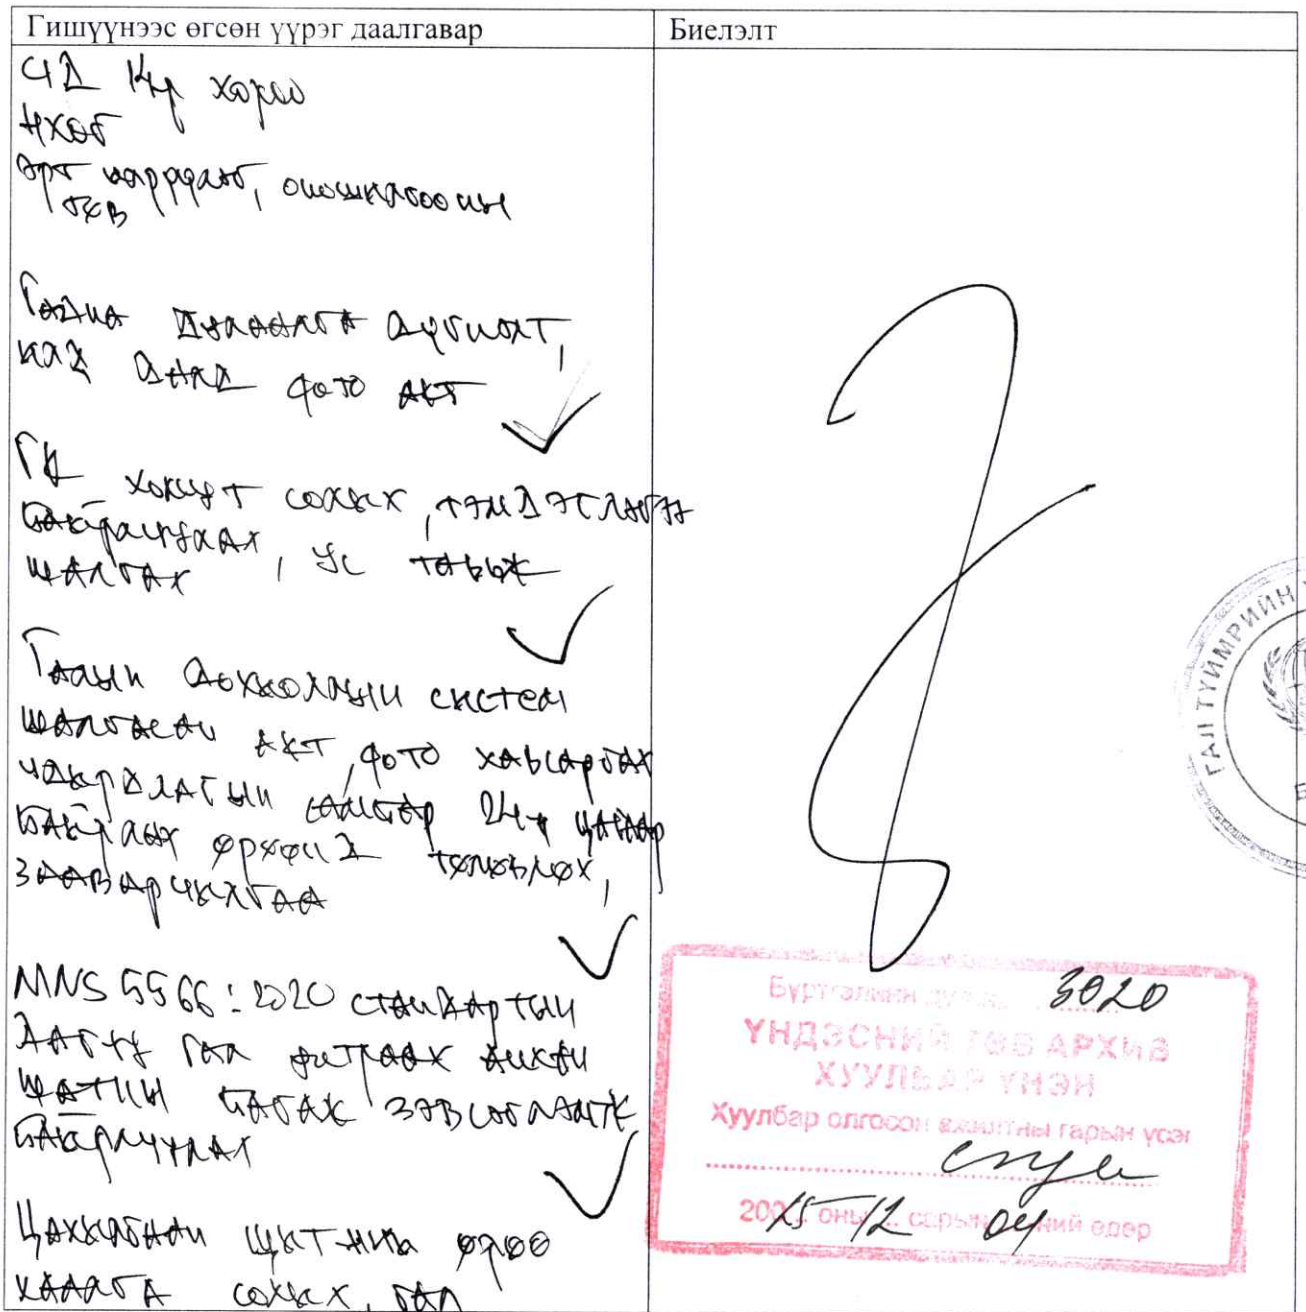 Гишүүнээс өгсөн үүрэг даалгавар
Биелэлт
ЧД 14-р хороо
НХӨГ
Эрт илрүүлэг, оношлогооны
төв
Гадна дулаалга
фото акт
ГК солих, тэмдэглэгээ
байршуулах, ус тавьж
шалгах
Галын дохиоллын систем
шалгасан акт, фото хавсаргах
удирдлагын самбар 24-н цагаар
байрлах өрөөнд төлөвлөх,
зааварчилгаа
MNS 5566:2020 стандартын
дагуу гал унтраах анхан
шатны багаж зэвсэглэмж
байрлуулах
Цахилгаан щит-ний өрөө
хаалга солих, гал
ГАЛ ТҮЙМРИЙН
Бүртгэлийн дугаар 3020
ҮНДЭСНИЙ ТӨВ АРХИВ
ХУУЛБАР ҮНЭН
Хуулбар олгосон ажилтны гарын үсэг
200 25 оны 12 сарын 04 ний өдөр